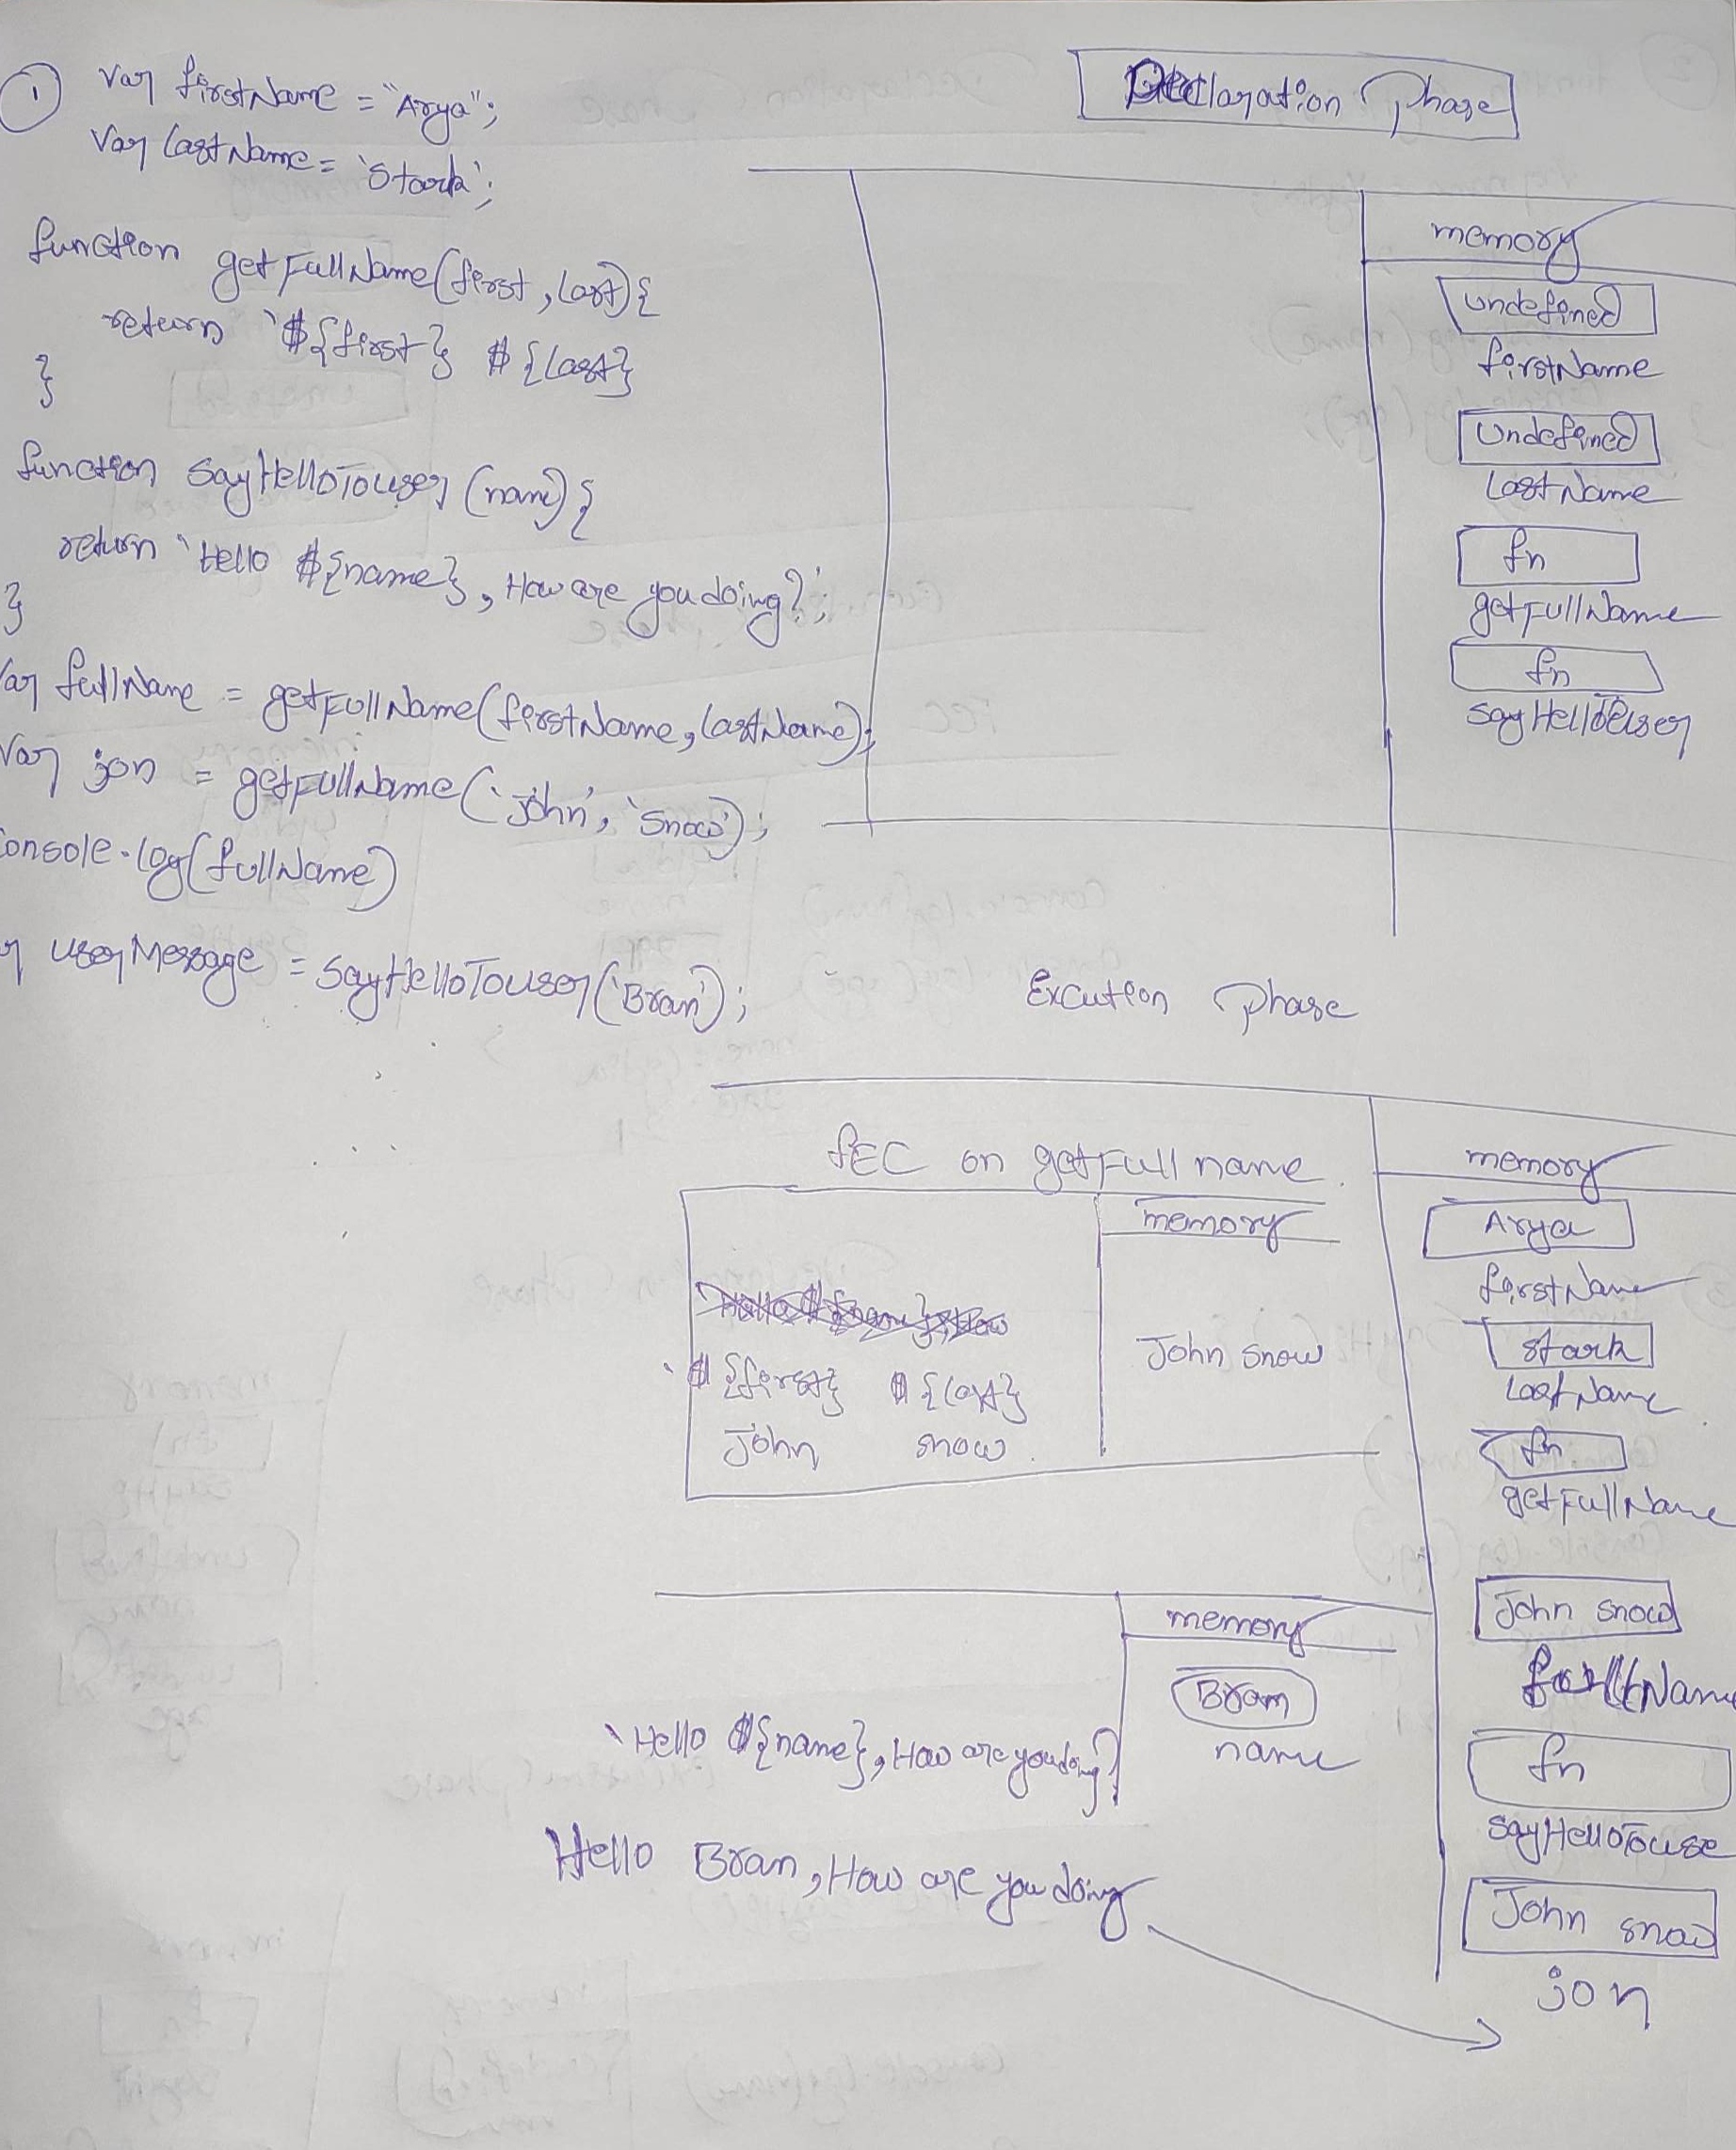 1
var firstName = "Arya";
Var lastName = 'Stark';
function getFullName(first, last){
return `${first} ${last}
}
function sayHelloToUser(name){
return `Hello ${name}, How are you doing?`;
}
Var fullName = getFullName(firstName, lastName);
Var jon = getFullName('John', 'Snow');
Console.log(fullName)
userMessage = sayHelloToUser('Bran');
Declaration Phase
memory
undefined
firstName
undefined
lastName
fn
getFullName
fn
sayHelloToUser
Excution Phase
fEC on getFull name
memory
John snow
`${first} ${last}
John snow
memory
Arya
firstName
stark
lastName
fn
getFullName
John snow
fullName
fn
sayHelloTouse
John snow
jon
memory
Bran
name
`Hello ${name}, How are you doing?
Hello Bran, How are you doing